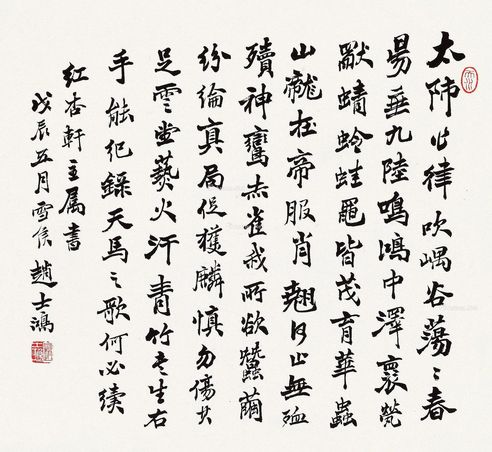 太師律吹嵎谷蕩〻春
昜垂九陸鳴鴻中澤裹
獸蜻蛉蛙黽皆茂育華蟲
山龍在帝服肖翹何止無殈
殰神鸞赤雀我所欲蠶繭
紛綸真局促獲麟慎勿傷其
足雲堂爇火汗青竹老生右
手能紀錄天馬之歌何必續
紅杏軒主属書
戊辰五月雪侯趙士鴻